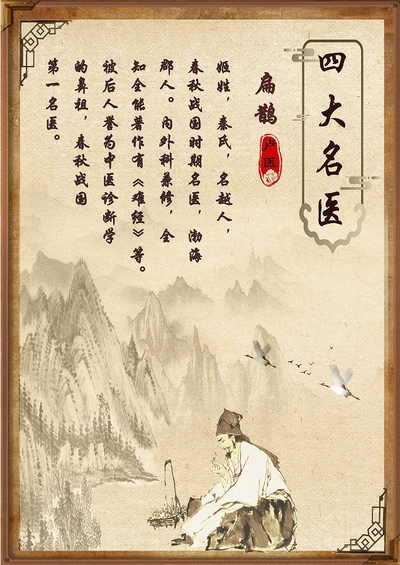 四大名医
扁鹊
卢医
姬姓，秦氏，名越人，
春秋战国时期名医，渤海
郡人。内外科兼修，全
知全能著作有《难经》等。
被后人誉为中医诊断学
的鼻祖，春秋战国
第一名医。